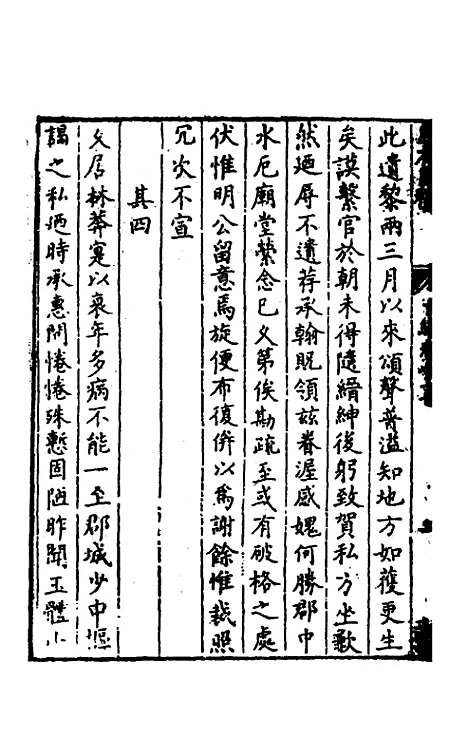 此遺黎兩三月以來頌聲普溢知地方如獲更生
矣謨繫官於朝未得隨縉紳後躬致賀私方坐歉
然廼辱不遺荐承翰貺領玆眷渥感媿何勝郡中
水厄廟堂縈念已久第俟勘疏至或有破格之處
伏惟明公留意焉旋便布復倂以爲謝餘惟裁照
冗次不宣
其四
久居林莽寔以衰年多病不能一至郡城少申摳
謁之私廼時承惠問惓惓殊慙固陋昨聞玉體小